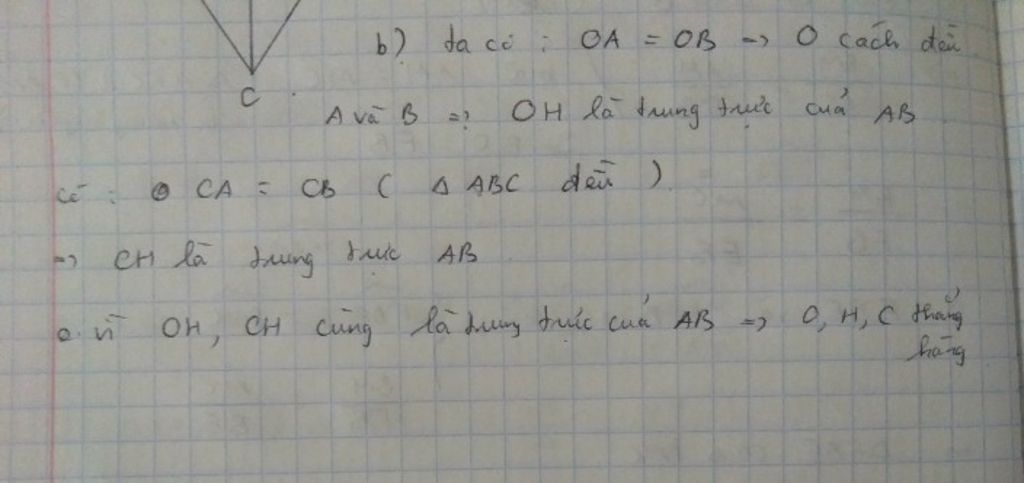 b) ta có : OA = OB => O cách đều
C
A và B => OH là trung trực của AB
có : CA = CB ( Δ ABC đều )
=> CH là trung trực AB
vì OH, CH cùng là trung trực của AB => O, H, C thẳng
hàng